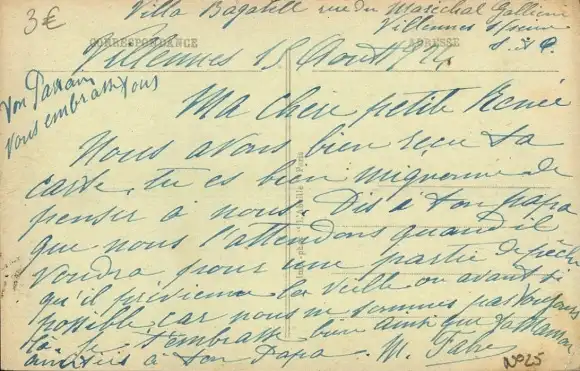 3€
Villa Bagatell rue du Maréchal Gallieni
Villennes s/Seine
S. & O.
CORRESPONDANCE
ADRESSE
Villennes 15 Août
Ton Parrain
vous embrasse tous
Ma chère petite Renée
Nous avons bien reçu ta
carte, tu es bien mignonne de
penser à nous. Dis à ton papa
que nous l'attendons quand il
voudra pour une partie de pêche
qu'il prévienne la veille ou avant si
possible car nous ne sommes pas toujours
là. Je t'embrasse bien ainsi que ta Maman
amitiés à ton Papa. M. Fabre
N°25